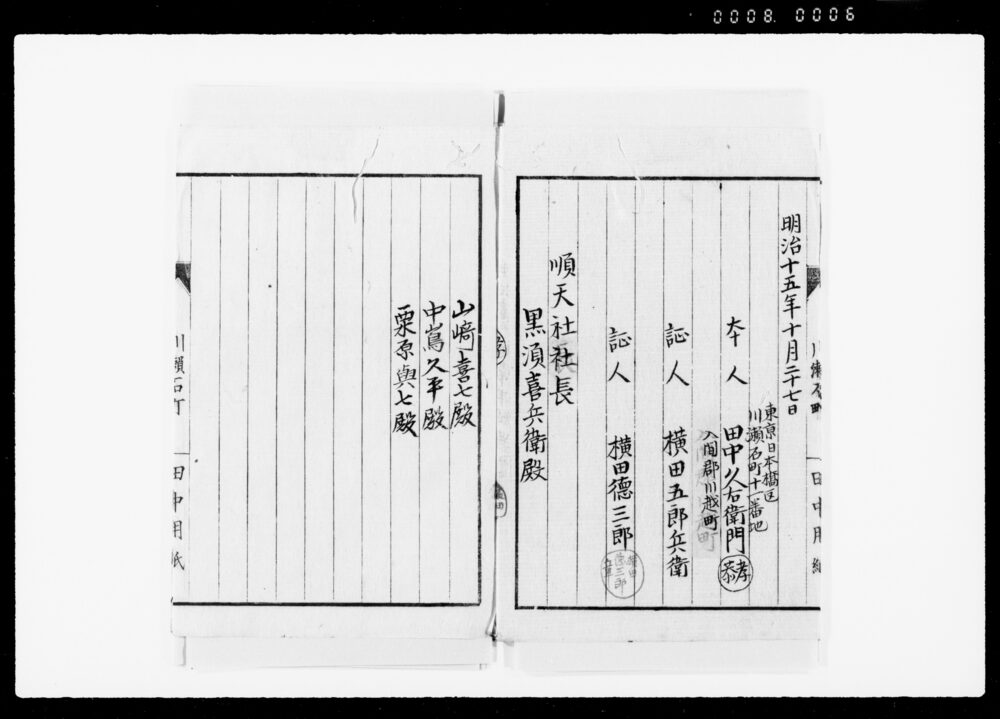 0008 0006
川瀬石町 田中用紙
明治十五年十月二十七日
東京日本橋区
川瀬石町十一番地
本人 田中久右衛門
孝
恭
入間郡川越町
証人 横田五郎兵衛
証人 横田德三郎
横田
德三郎
順天社社長
黒須喜兵衛殿
山﨑喜七殿
中嶌久平殿
栗原與七殿
川瀬石町 田中用紙